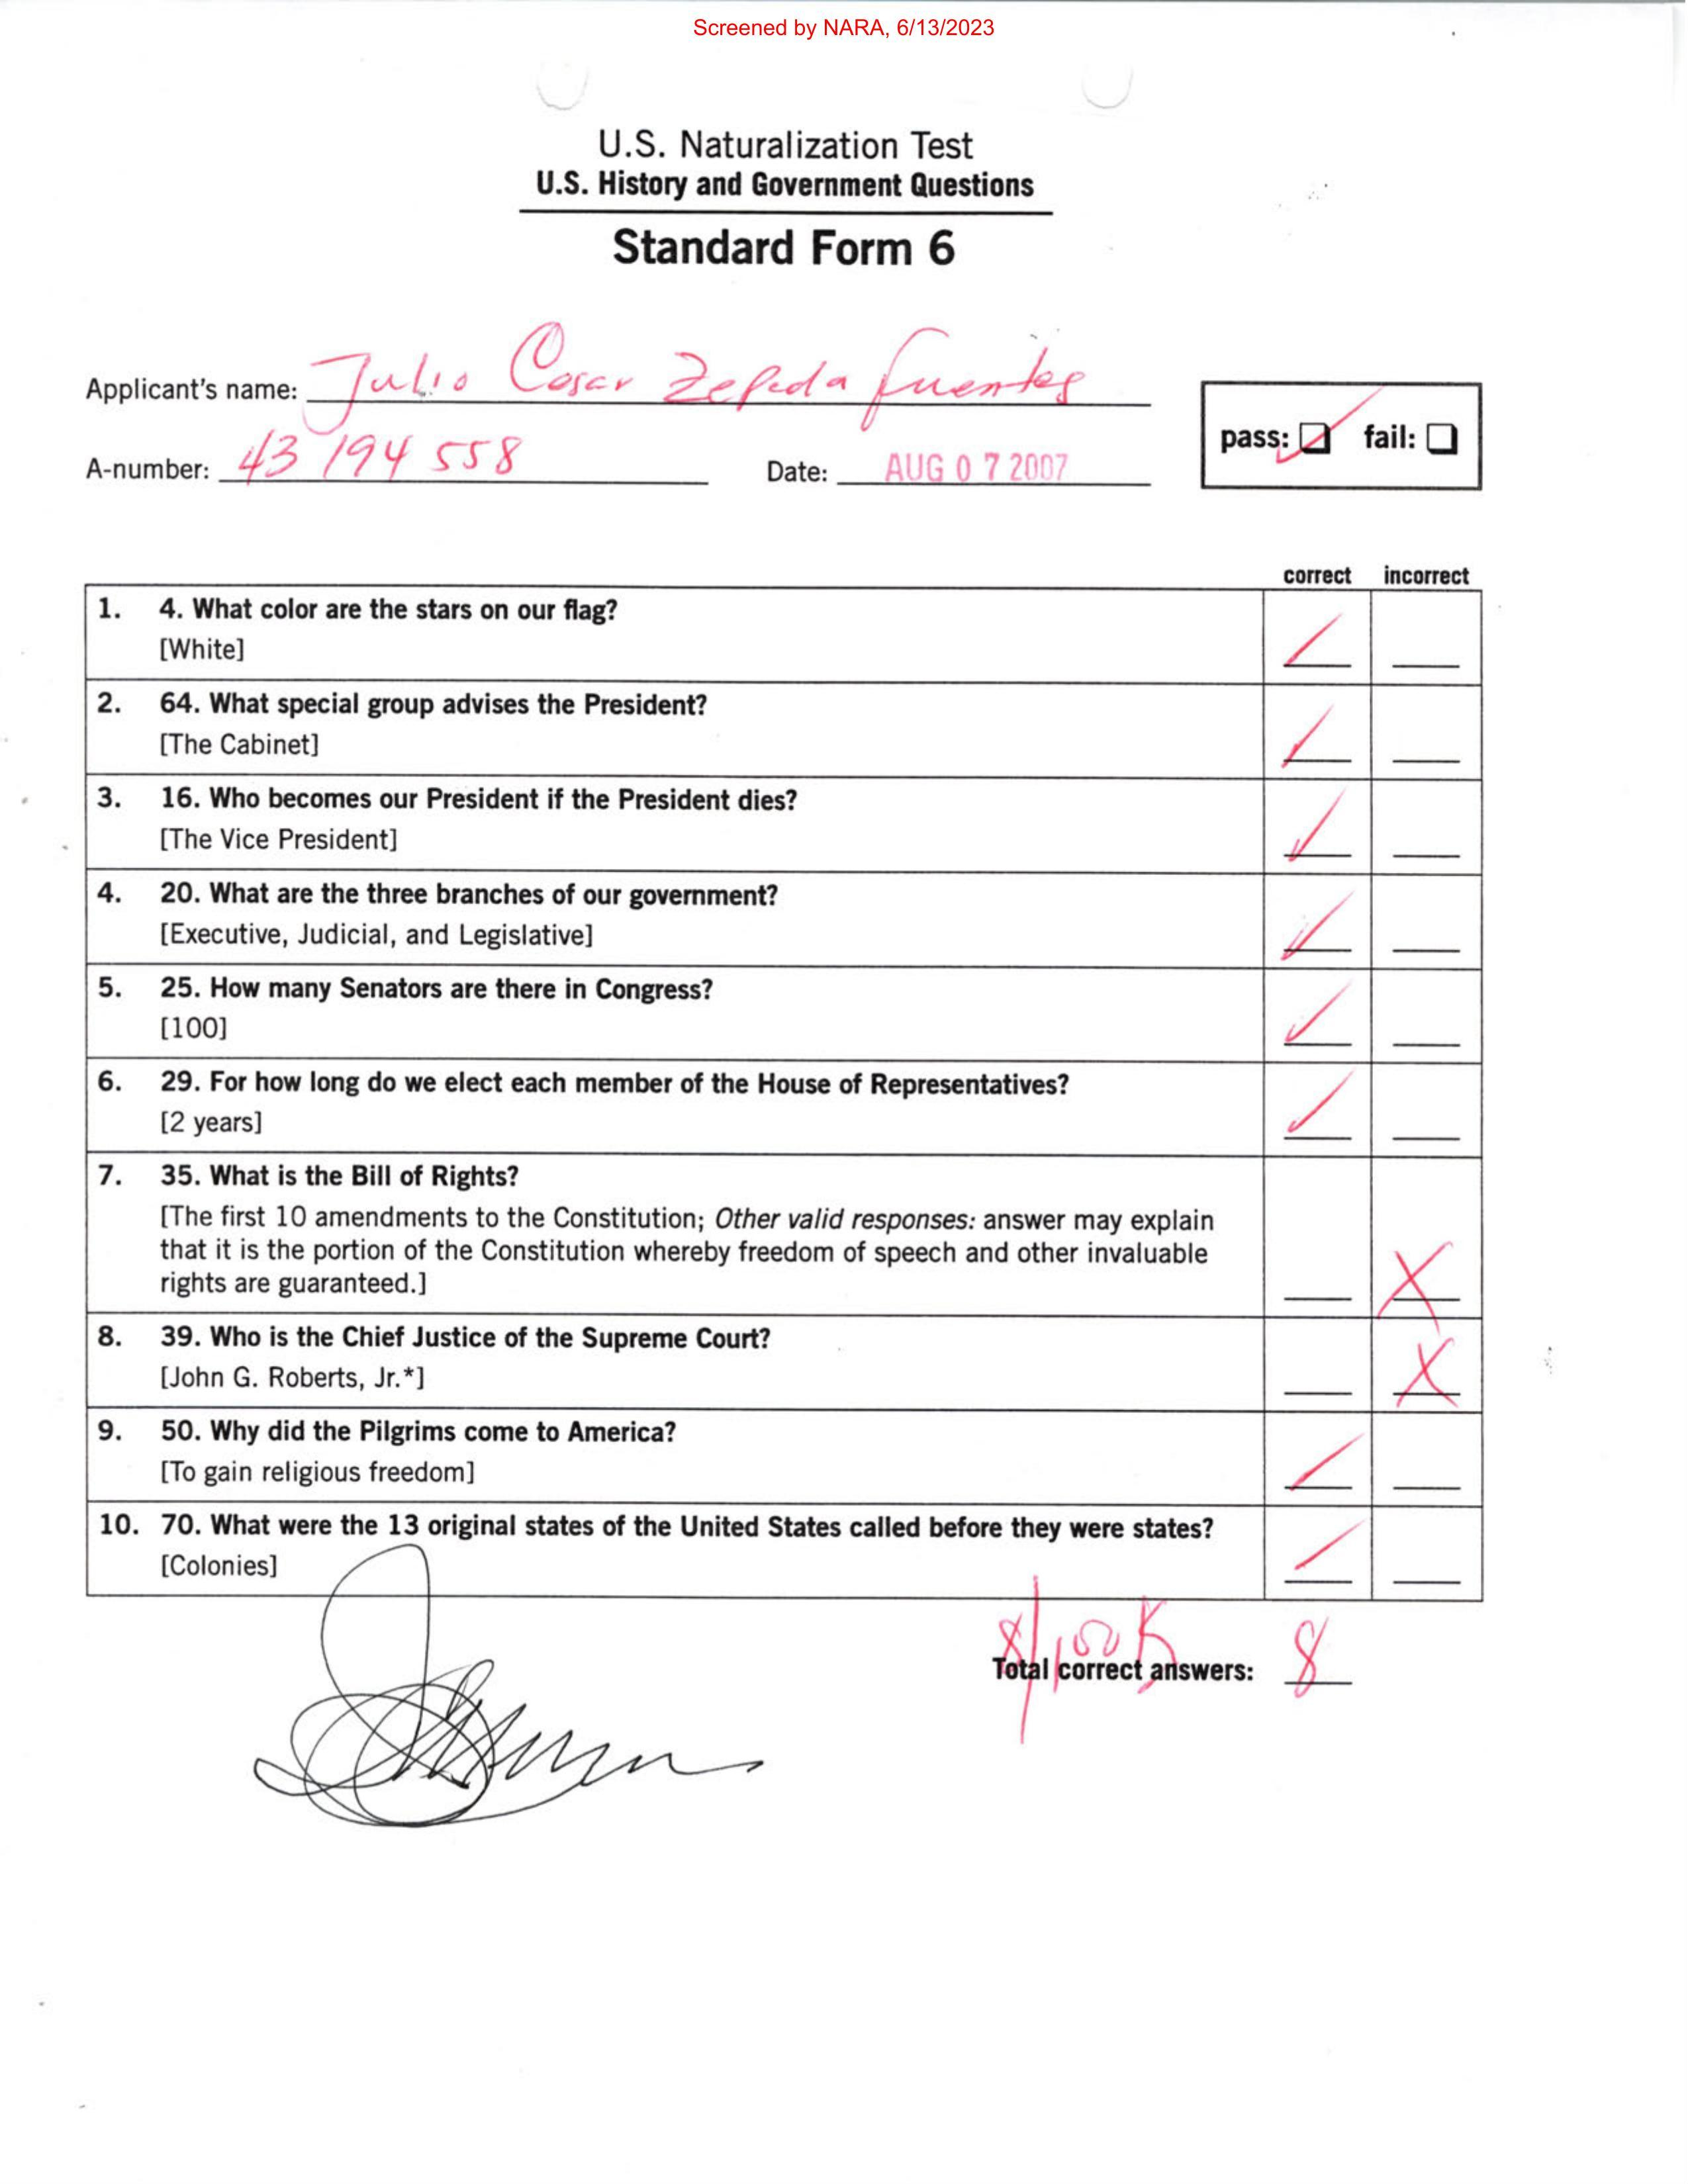 Screened by NARA, 6/13/2023
U.S. Naturalization Test
U.S. History and Government Questions
Standard Form 6
Applicant's name: Julio Cesar Zepeda Fuentes
A-number: 43 194 558 Date: AUG 07 2007 pass: fail:
correct incorrect
1. 4. What color are the stars on our flag?
[White]
2. 64. What special group advises the President?
[The Cabinet]
3. 16. Who becomes our President if the President dies?
[The Vice President]
4. 20. What are the three branches of our government?
[Executive, Judicial, and Legislative]
5. 25. How many Senators are there in Congress?
[100]
6. 29. For how long do we elect each member of the House of Representatives?
[2 years]
7. 35. What is the Bill of Rights?
[The first 10 amendments to the Constitution; Other valid responses: answer may explain
that it is the portion of the Constitution whereby freedom of speech and other invaluable
rights are guaranteed.]
8. 39. Who is the Chief Justice of the Supreme Court?
[John G. Roberts, Jr.*]
9. 50. Why did the Pilgrims come to America?
[To gain religious freedom]
10. 70. What were the 13 original states of the United States called before they were states?
[Colonies]
Total correct answers: 8